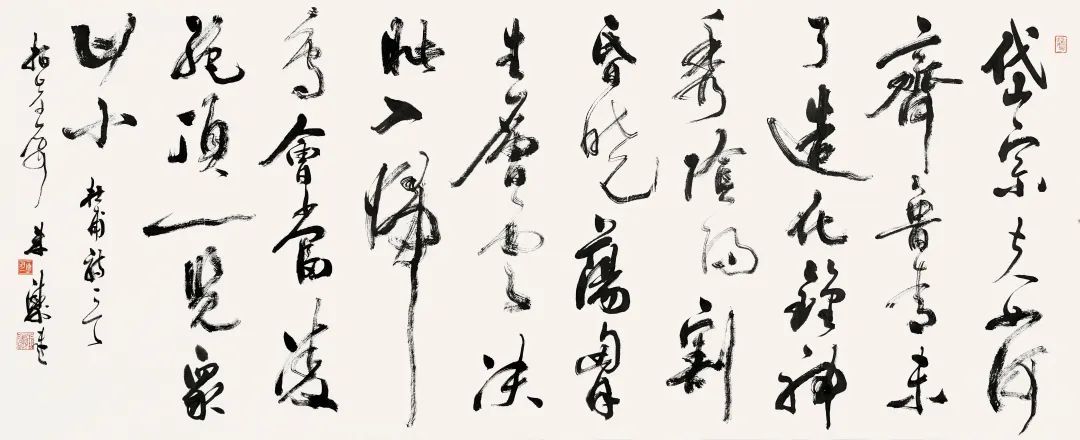 岱宗夫如何
齊魯青未
了造化鍾神
秀陰陽割
昏曉蕩胷
生層雲決
眥入歸
鳥會當凌
絕頂一覽眾
山小
杜甫詩